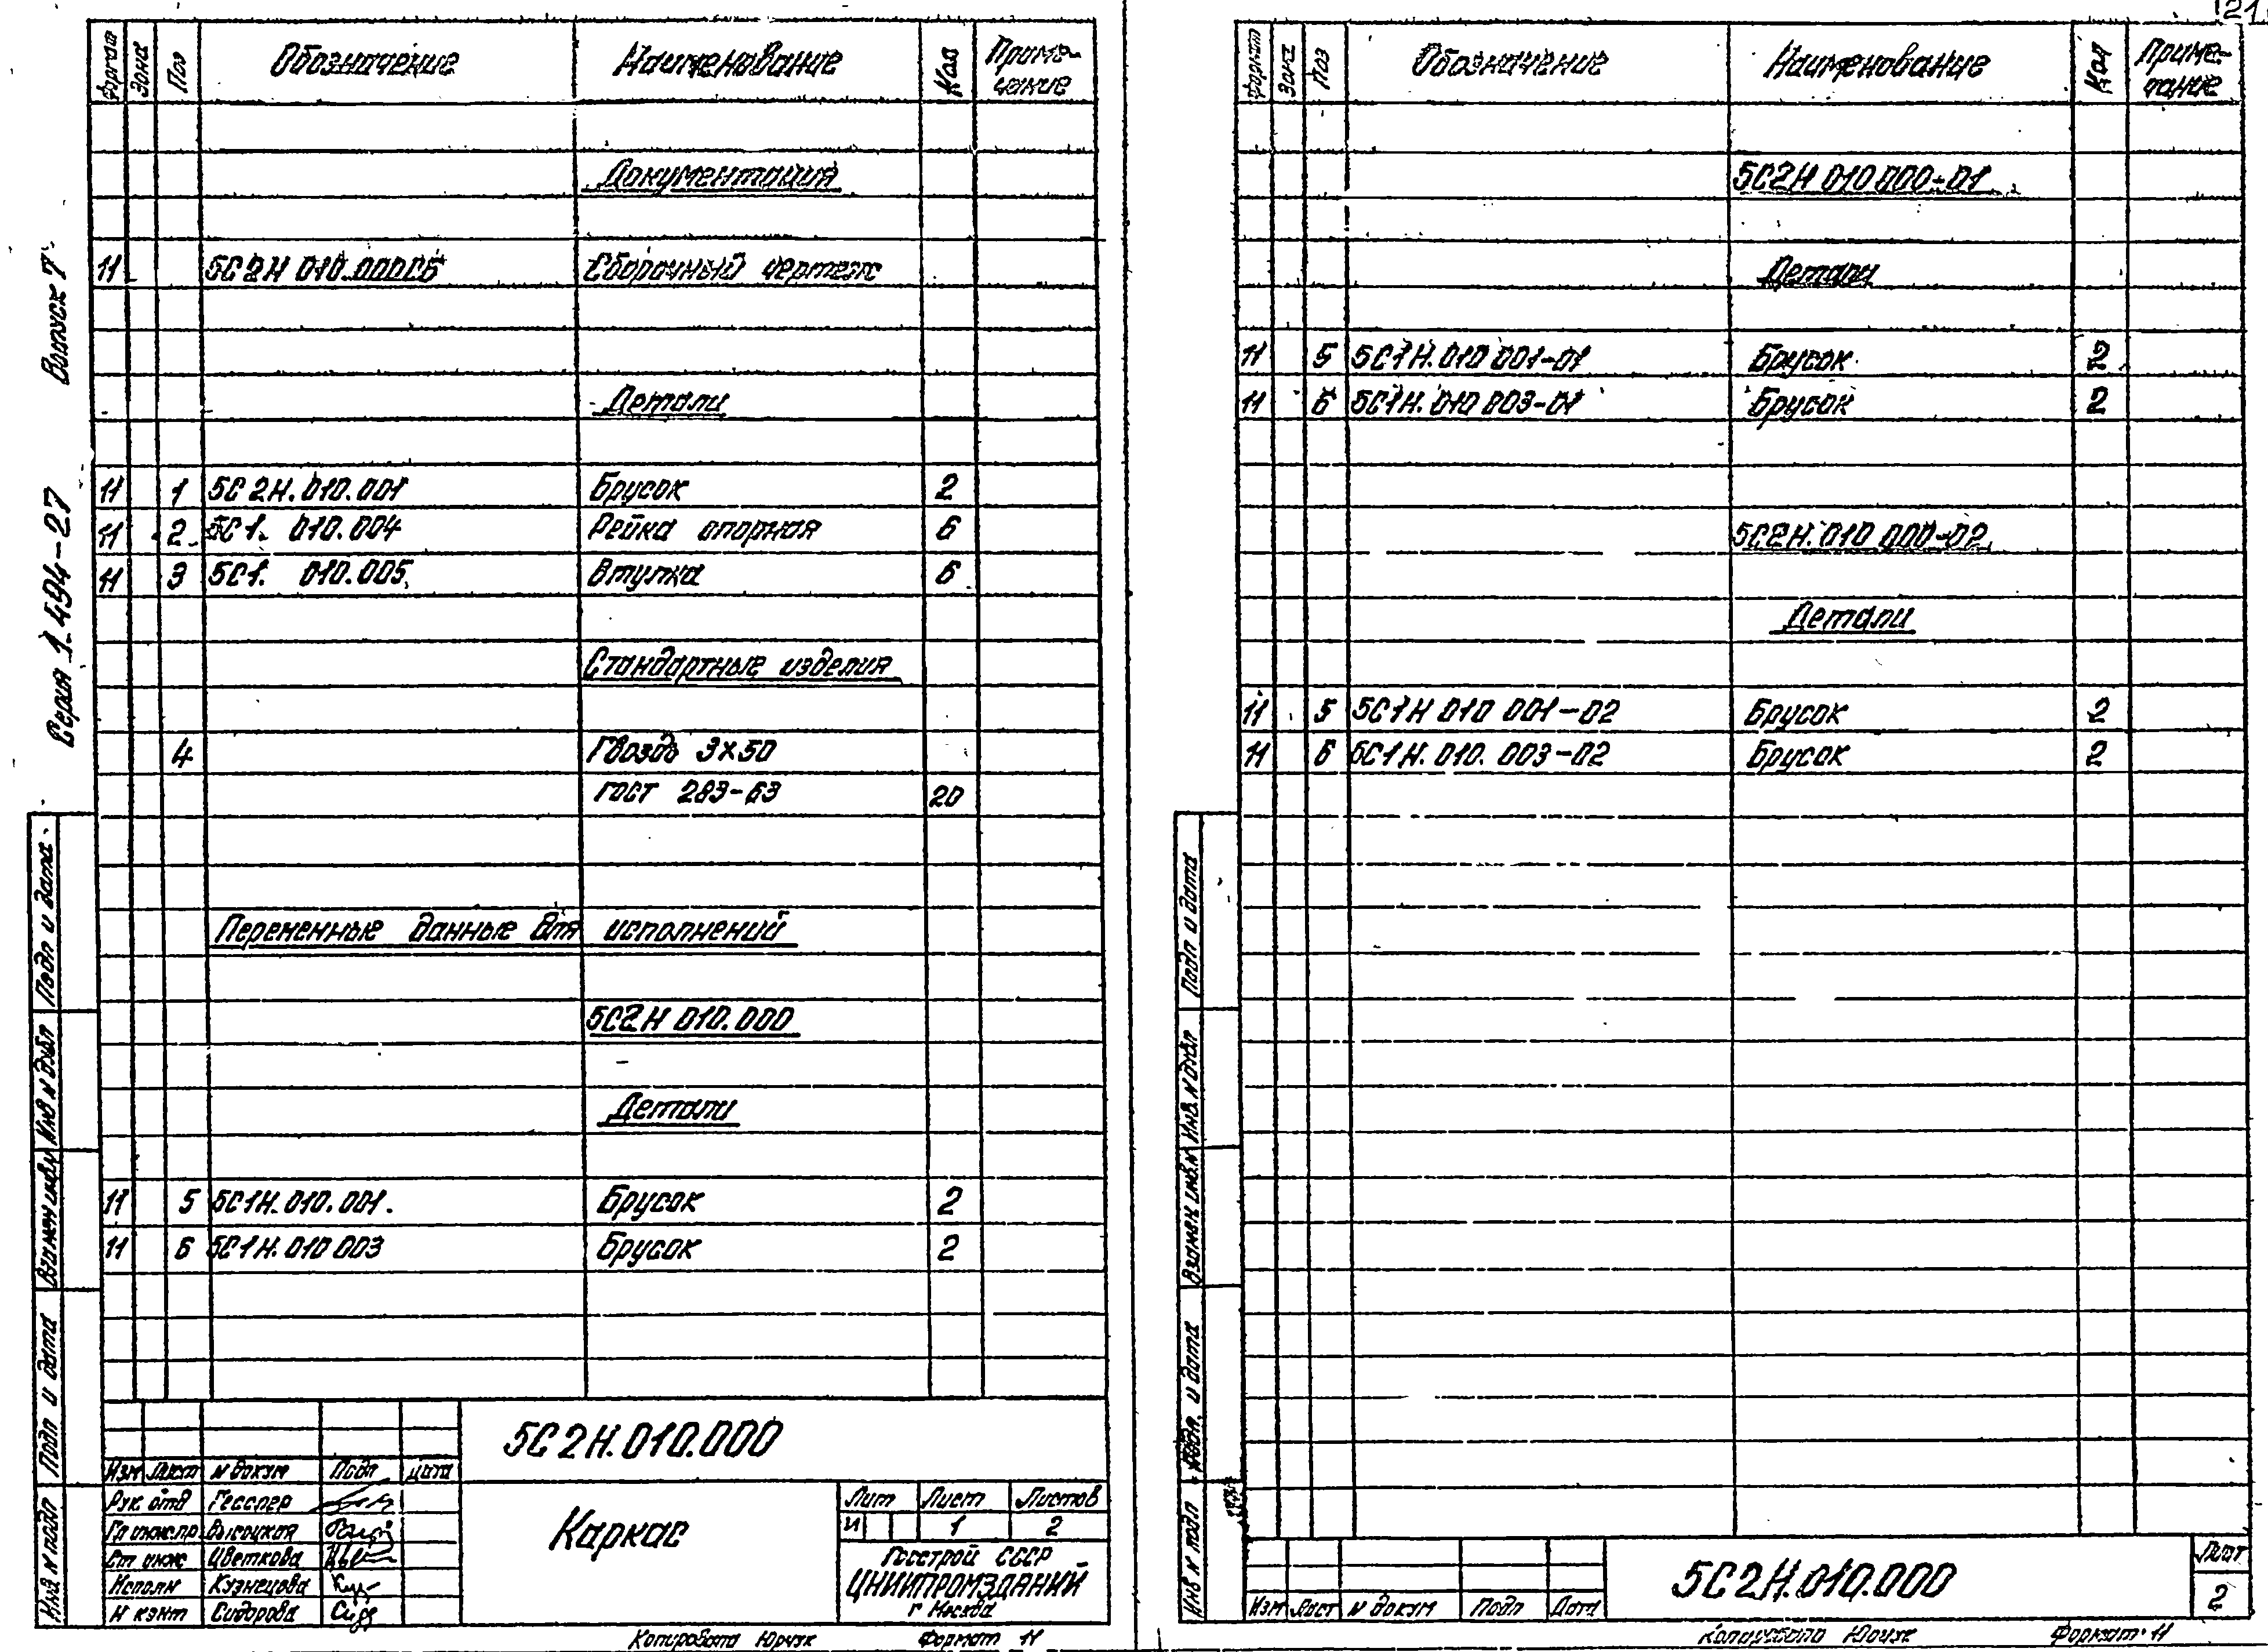 Серия 1.494-27 Выпуск 7
Формат Зона Поз Обозначение Наименование Кол Примечание
Документация
11 5С2Н 010.000СБ Сборочный чертеж
Детали
11 1 5С2Н.010.001 Брусок 2
11 2 5С1. 010.004 Рейка опорная 6
11 3 5С1. 010.005 Втулка 6
Стандартные изделия
4 Гвоздь 3х50
ГОСТ 283-63 20
Переменные данные для исполнений
5С2Н 010.000
Детали
11 5 5С1Н.010.001. Брусок 2
11 6 5С1Н.010 003 Брусок 2
Инв N подл Подп и дата Взамен инв.N Инв N дубл Подп и дата
5С2Н.010.000
Изм Лист N докум Подп Дата
Рук отд Гесслер
Гл инж.пр. Высоцкая
Ст инж Цветкова
Исполн Кузнецова
Н конт Сидорова
Каркас
Лит Лист Листов
И 1 2
Госстрой СССР
ЦНИИПРОМЗДАНИЙ
г Москва
Копировала Формат 11
121
Формат Зона Поз Обозначение Наименование Кол Примечание
5С2Н 010 000-01
Детали
11 5 5С1Н.010 001-01 Брусок 2
11 6 5С1Н.010 003-01 Брусок 2
5С2Н.010 000-02
Детали
11 5 5С1Н 010 001-02 Брусок 2
11 6 5С1Н.010. 003-02 Брусок 2
Инв N подл Подп. и дата Взамен инв.N Инв.N дубл Подп и дата
Изм Лист N докум Подп Дата
5С2Н.010.000
Лист
2
Копировала Формат 11